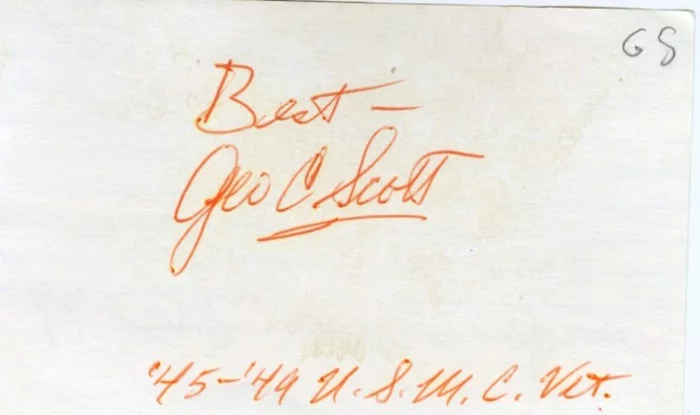 GS
Best —
Geo C. Scott
'45-'49 U.S.M.C. Vet.